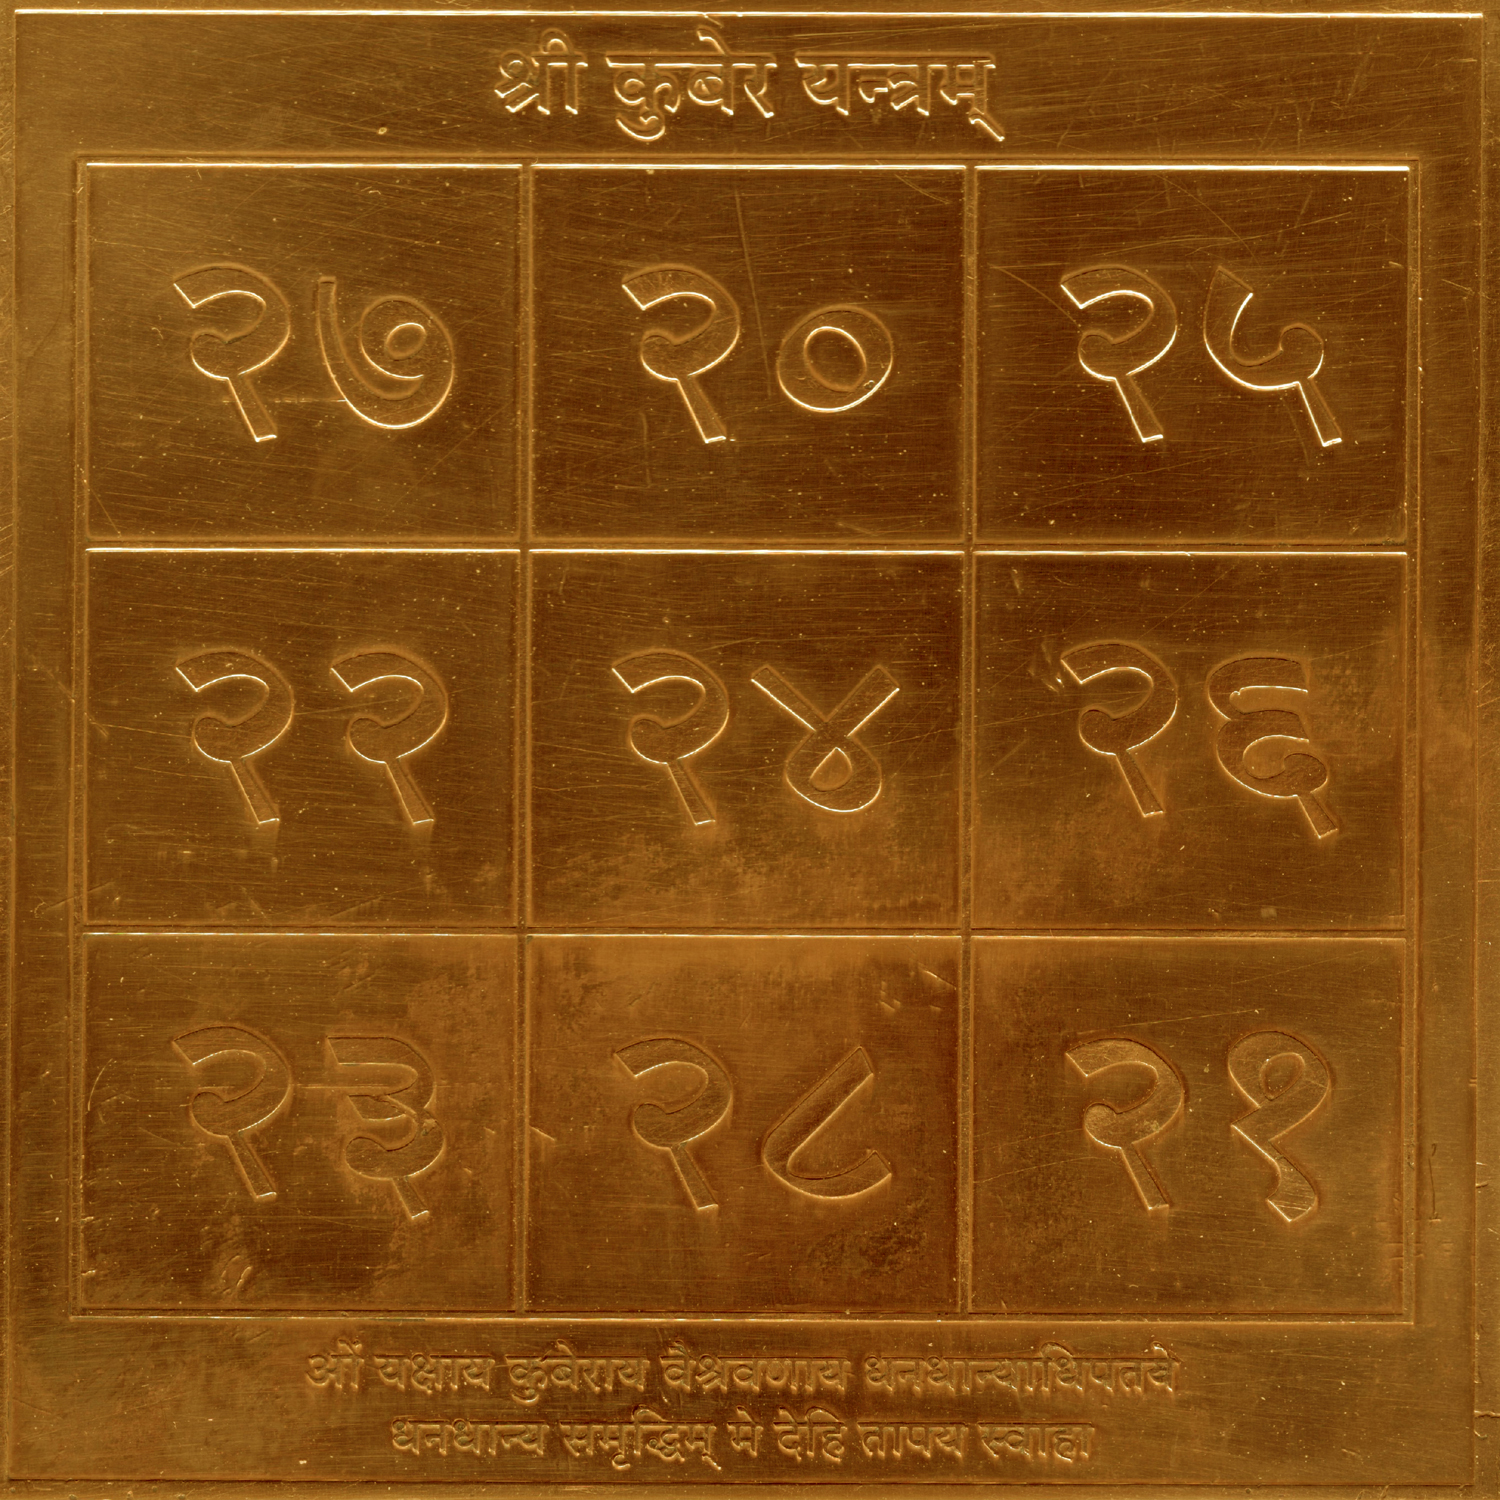 श्री कुबेर यन्त्रम्
२७ २० २५
२२ २४ २६
२३ २८ २१
ओं यक्षाय कुबेराय वैश्रवणाय धनधान्याधिपतये
धनधान्य समृद्धिम् मे देहि तापय स्वाहा